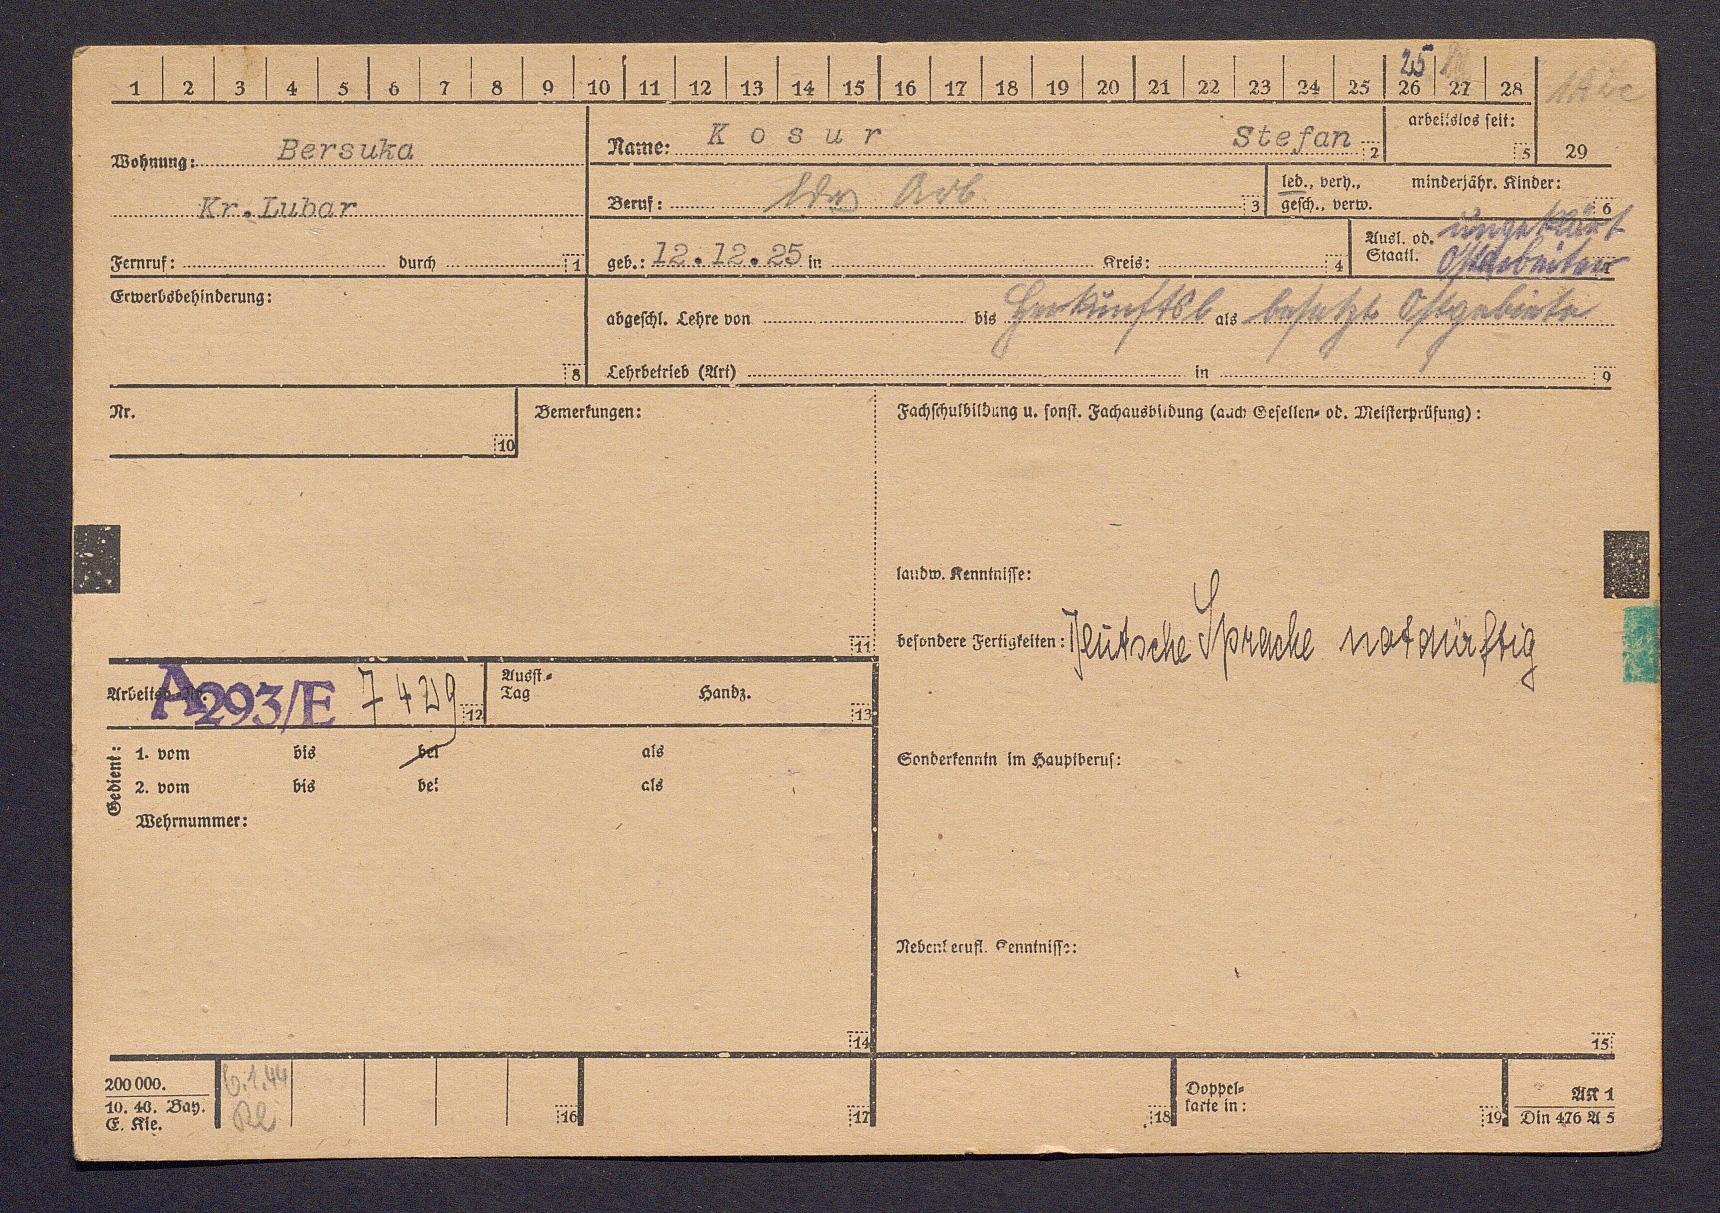 1 2 3 4 5 6 7 8 9 10 11 12 13 14 15 16 17 18 19 20 21 22 23 24 25 26 27 28
25
Wohnung: Bersuka
Kr. Lubar
Fernruf: durch 1
Name: Kosur Stefan 2
arbeitslos seit: 5
29
Beruf: 3
led., verh., gesch., verw.
minderjähr. Kinder: 6
geb.: 12.12.25 in Kreis: 4
Ausl. od. Staatl. ungeklärt
Ostarbeiter
Erwerbsbehinderung:
8
abgeschl. Lehre von bis Herkunftsl als besetzte Ostgebiete
Lehrbetrieb (Art) in 9
Nr.
10
Bemerkungen:
11
Fachschulbildung u. sonst. Fachausbildung (auch Gesellen- od. Meisterprüfung):
landw. Kenntnisse:
besondere Fertigkeiten: Deutsche Sprache notdürftig
Arbeitsb.-Nr. A293/E 7429 12
Ausst.-Tag Handz. 13
Gedient:
1. vom bis bei als
2. vom bis bei als
Wehrnummer:
14
Sonderkenntn im Hauptberuf:
Nebenberufl. Kenntnisse:
15
200 000.
10. 40. Bay.
E. Kie.
6.1.44
16
17
18
Doppelkarte in:
19
AK 1
Din 476 A 5